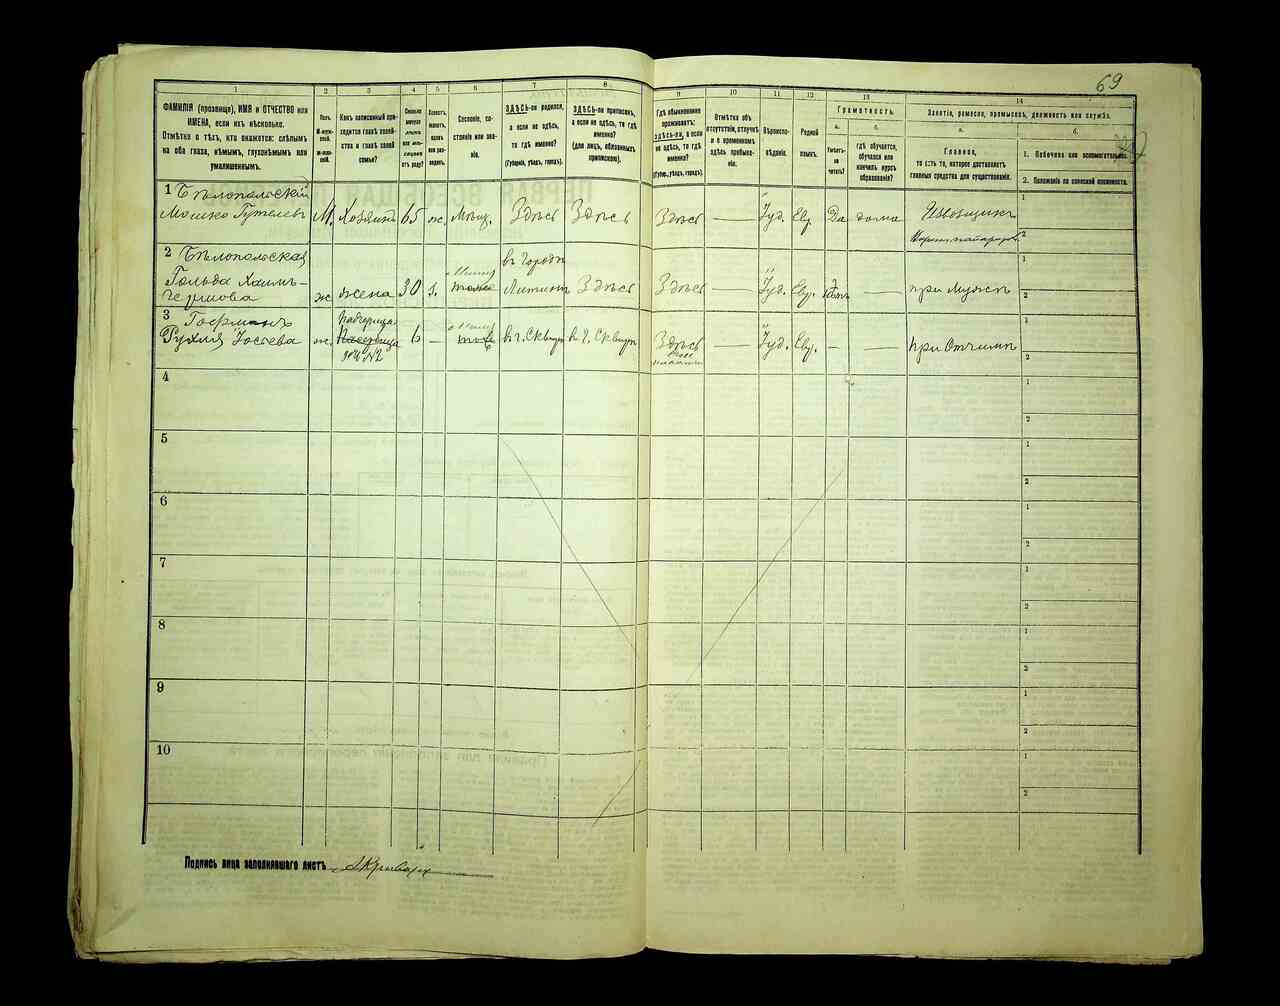 69
1
2
3
4
5
6
7
8
9
10
11
12
13
14
ФАМИЛІЯ (прозвище), ИМЯ и ОТЧЕСТВО или
ИМЕНА, если ихъ нѣсколько.
Отмѣтка о тѣхъ, кто окажется: слѣпымъ
на оба глаза, нѣмымъ, глухонѣмымъ или
умалишеннымъ.
Полъ.
Какъ записанный при-
ходится главѣ хозяй-
ства и главѣ своей
семьи?
Сколько
минуло
лѣтъ
или мѣ-
сяцевъ
отъ роду?
Холостъ,
женатъ,
вдовъ
или раз-
веденъ.
Сословіе, со-
стояніе или зва-
ніе.
ЗДѢСЬ-ли родился,
а если не здѣсь,
то гдѣ именно?
(Губернія, уѣздъ, городъ).
ЗДѢСЬ-ли приписанъ,
а если не здѣсь, то гдѣ
именно?
(для лицъ, обязанныхъ
припискою).
Гдѣ обыкновенно
проживаетъ:
здѣсь-ли, а если
не здѣсь, то гдѣ
именно?
(Губер., уѣздъ, городъ).
Отмѣтка объ
отсутствіи, отлучкѣ
и о временномъ
здѣсь пребыва-
ніи.
Вѣроиспо-
вѣданіе.
Родной
языкъ.
Грамотность
а.
Умѣетъ-
ли
читать?
б.
гдѣ обучается,
обучался или
кончилъ курсъ
образованія?
Занятіе, ремесло, промыселъ, должность или служба.
а.
Главное,
то есть то, которое доставляетъ
главныя средства для существованія.
б.
1. Побочное или вспомогательное.
2. Положеніе по воинской повинности.
1 Бѣлопольскій
Мошко Гутелевъ М. Хозяинъ 65 ж. Мѣщ. Здѣсь Здѣсь Здѣсь — Іуд. Евр. Да дома Извощикъ
1
2
2 Бѣлопольская
Гольда Хаимъ-
Гершкова ж жена 30 з. тоже въ городѣ
Литинъ Здѣсь Здѣсь — Іуд. Евр. Нѣтъ — при мужѣ
1
2
3 Гоерманъ
Рухля Іосева ж. Падчерица
6 — въ г. Сквирѣ въ г. Сквирѣ Здѣсь — Іуд. Евр. — — при отчимѣ
1
2
4
1
2
5
1
2
6
1
2
7
1
2
8
1
2
9
1
2
10
1
2
Подпись лица заполнявшаго листъ